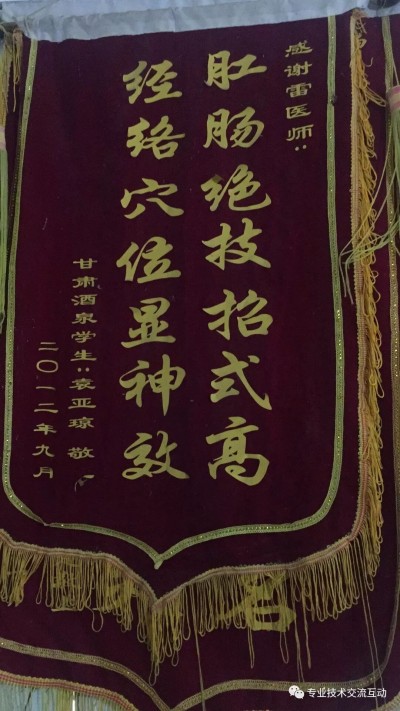 感谢雷医师：
肛肠绝技招式高
经络穴位显神效
甘肃酒泉学生：袁亚琼 敬
二〇一二年九月
名
专业技术交流互动